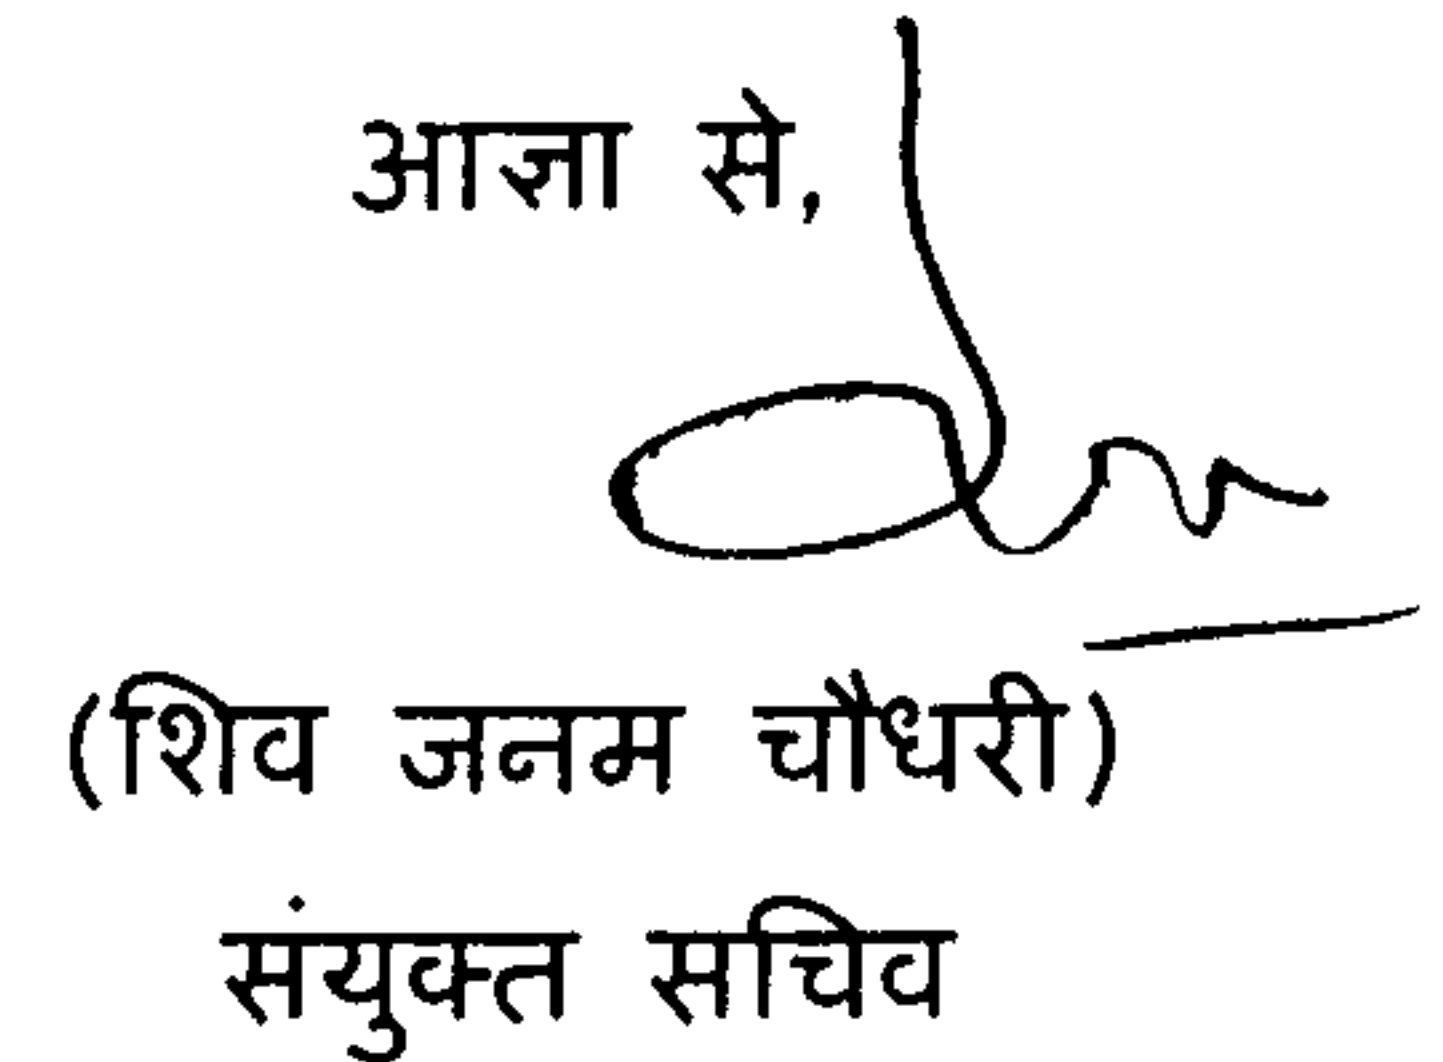 आज्ञा से,
(शिव जनम चौधरी)
संयुक्त सचिव